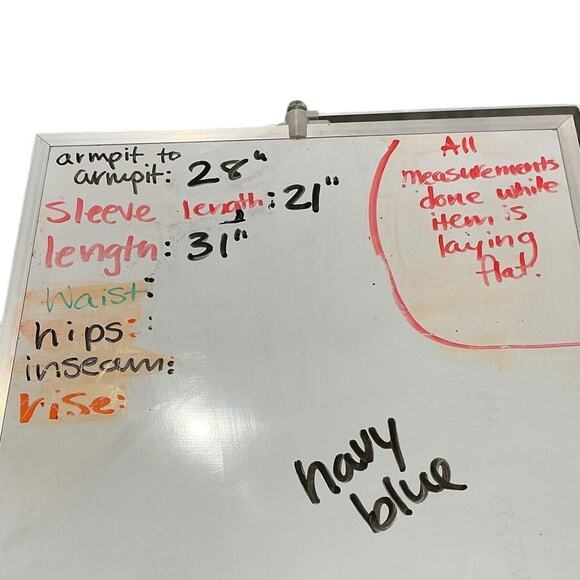 armpit to
armpit: 28"
Sleeve length: 21"
length: 31"
Waist:
hips:
inseam:
rise:
All
measurements
done while
item is
laying
flat.
navy
blue